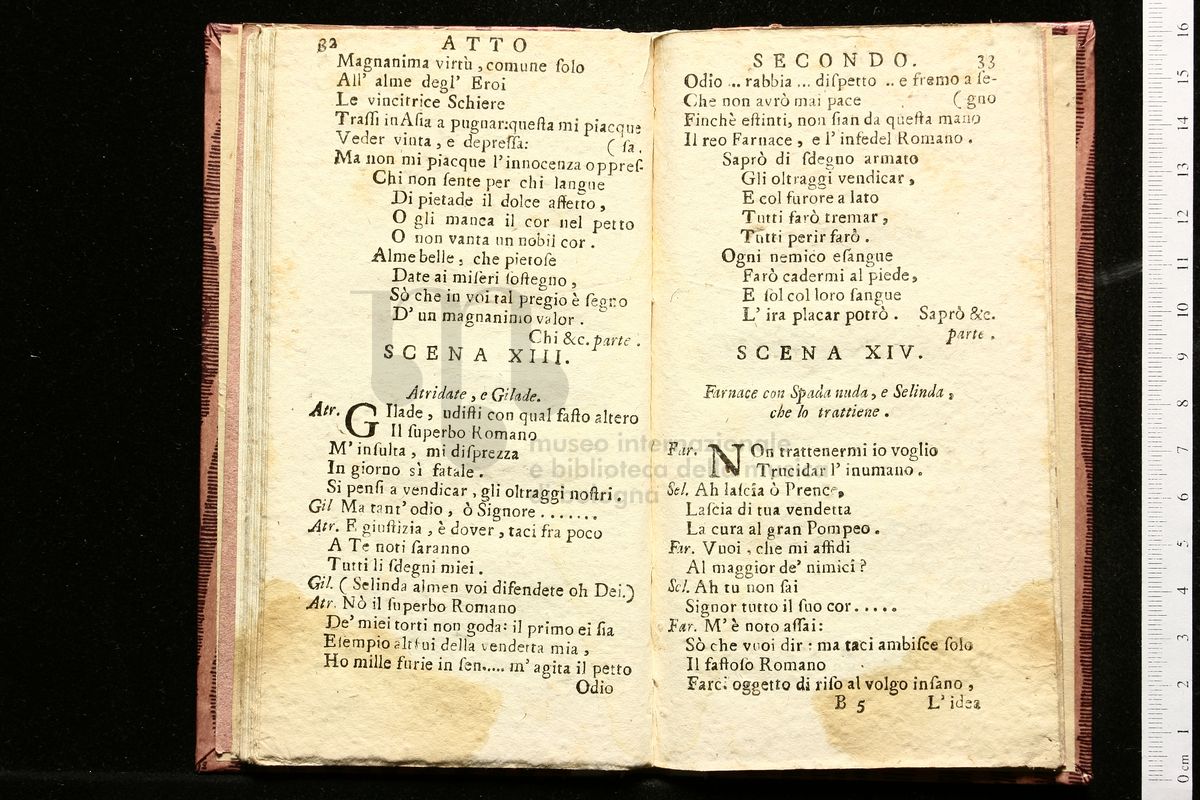 32 ATTO
Magnanima virtù, comune ſolo
All' alme degl' Eroi
Le vincitrice Schiere
Traſſi in Aſia a pugnar: queſta mi piacque
Veder vinta, e depreſſa: (ſa.
Ma non mi piacque l'innocenza oppreſ-
Chi non ſente per chi langue
Di pietade il dolce affetto,
O gli manca il cor nel petto
O non vanta un nobil cor.
Alme belle, che pietoſe
Date ai miſeri ſoſtegno,
Sò che in voi tal pregio è ſegno
D' un magnanimo valor.
Chi &c. parte.
SCENA XIII.
Atridate, e Gilade.
Atr. GIlade, udiſti con qual faſto altero
Il ſuperbo Romano
M' inſulta, mi diſprezza
In giorno sì fatale.
Si penſi a vendicar, gli oltraggi noſtri.
Gil Ma tant' odio, ò Signore .......
Atr. E giuſtizia, è dover, taci fra poco
A Te noti ſaranno
Tutti li ſdegni miei.
Gil. (Selinda almen voi difendete oh Dei.)
Atr. Nò il ſuperbo Romano
De' miei torti non goda: il primo ei ſia
Eſempio altrui della vendetta mia,
Ho mille furie in ſen..... m' agita il petto
Odio
SECONDO. 33
Odio ... rabbia ... diſpetto .. e fremo a ſe-
Che non avrò mai pace (gno
Finchè eſtinti, non ſian da queſta mano
Il reo Farnace, e l' infedel Romano.
Saprò di ſdegno armato
Gli oltraggi vendicar,
E col furore a lato
Tutti farò tremar,
Tutti perir farò.
Ogni nemico eſangue
Farò cadermi al piede,
E ſol col loro ſangue
L' ira placar potrò. Saprò &c.
parte.
SCENA XIV.
Farnace con Spada nuda, e Selinda,
che lo trattiene.
Far. NOn trattenermi io voglio
Trucidar l' inumano.
Sel. Ah laſcia ò Prence,
Laſcia di tua vendetta
La cura al gran Pompeo.
Far. Vuoi, che mi affidi
Al maggior de' nimici?
Sel. Ah tu non ſai
Signor tutto il ſuo cor.....
Far. M' è noto aſſai:
Sò che vuoi dir: ma taci ambiſce ſolo
Il faſtoſo Romano
Farci oggetto di riſo al volgo inſano,
B 5 L' idea
museo internazionale
e biblioteca della musica
di bologna
0 cm 1 2 3 4 5 6 7 8 9 10 11 12 13 14 15 16